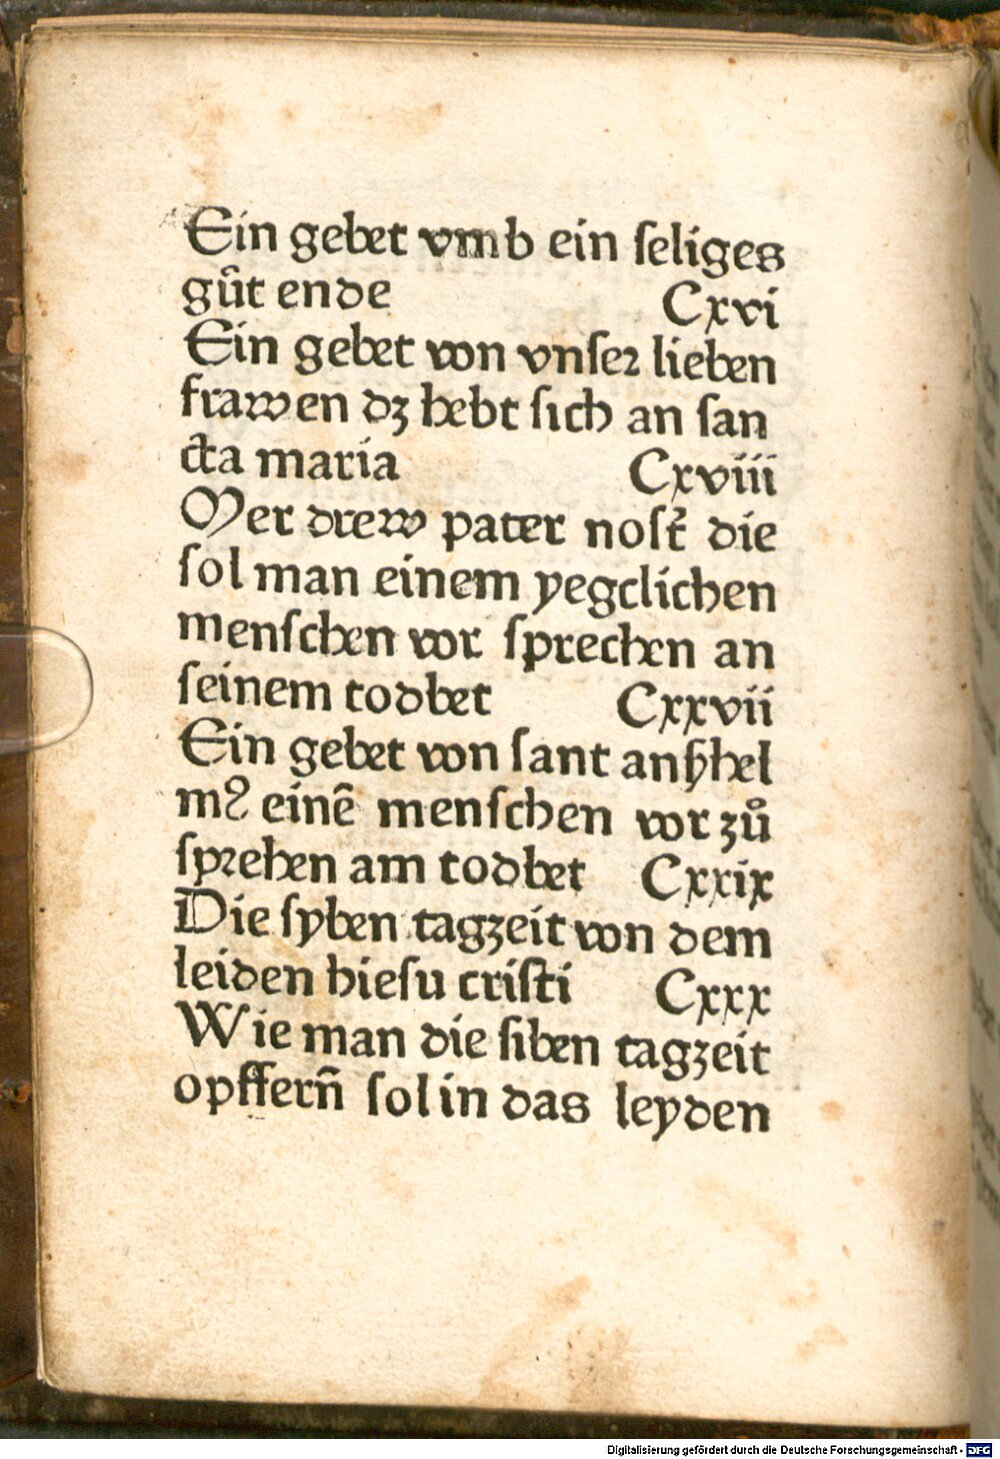 Ein gebet vmb ein ſeliges
gůt ende Cxvi
Ein gebet von vnſeꝛ lieben
frawen dʒ hebt ſich an ſan
cta maria Cxviii
Mer drew pater noſt̄ die
ſol man einem yegclichen
menſchen vor ſprechen an
ſeinem todbet Cxxvii
Ein gebet von ſant anſhel
mꝰ einē menſchen vor zů
ſpꝛehen am todbet Cxxix
Die ſyben tagzeit von dem
leiden hieſu criſti Cxxx
Wie man die ſiben tagzeit
opffern̄ ſol in das leyden
Digitalisierung gefördert durch die Deutsche Forschungsgemeinschaft - DFG